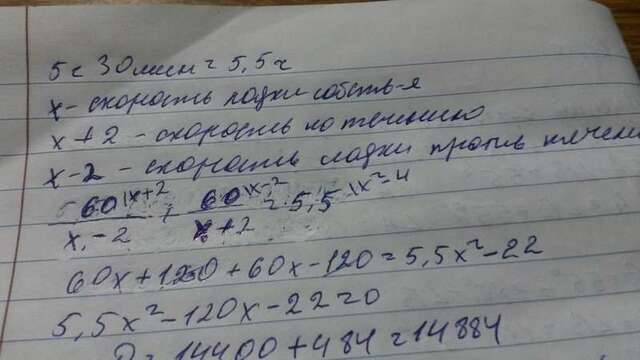 5ч 30мин = 5,5ч
x - скорость лодки собств-я
x + 2 - скорость по течению
x - 2 - скорость лодки против течени
60|x+2 / x - 2 + 60|x-2 / x + 2 = 5,5|x²-4
60x + 120 + 60x - 120 = 5,5x² - 22
5,5x² - 120x - 22 = 0
D = 14400 + 484 = 14884